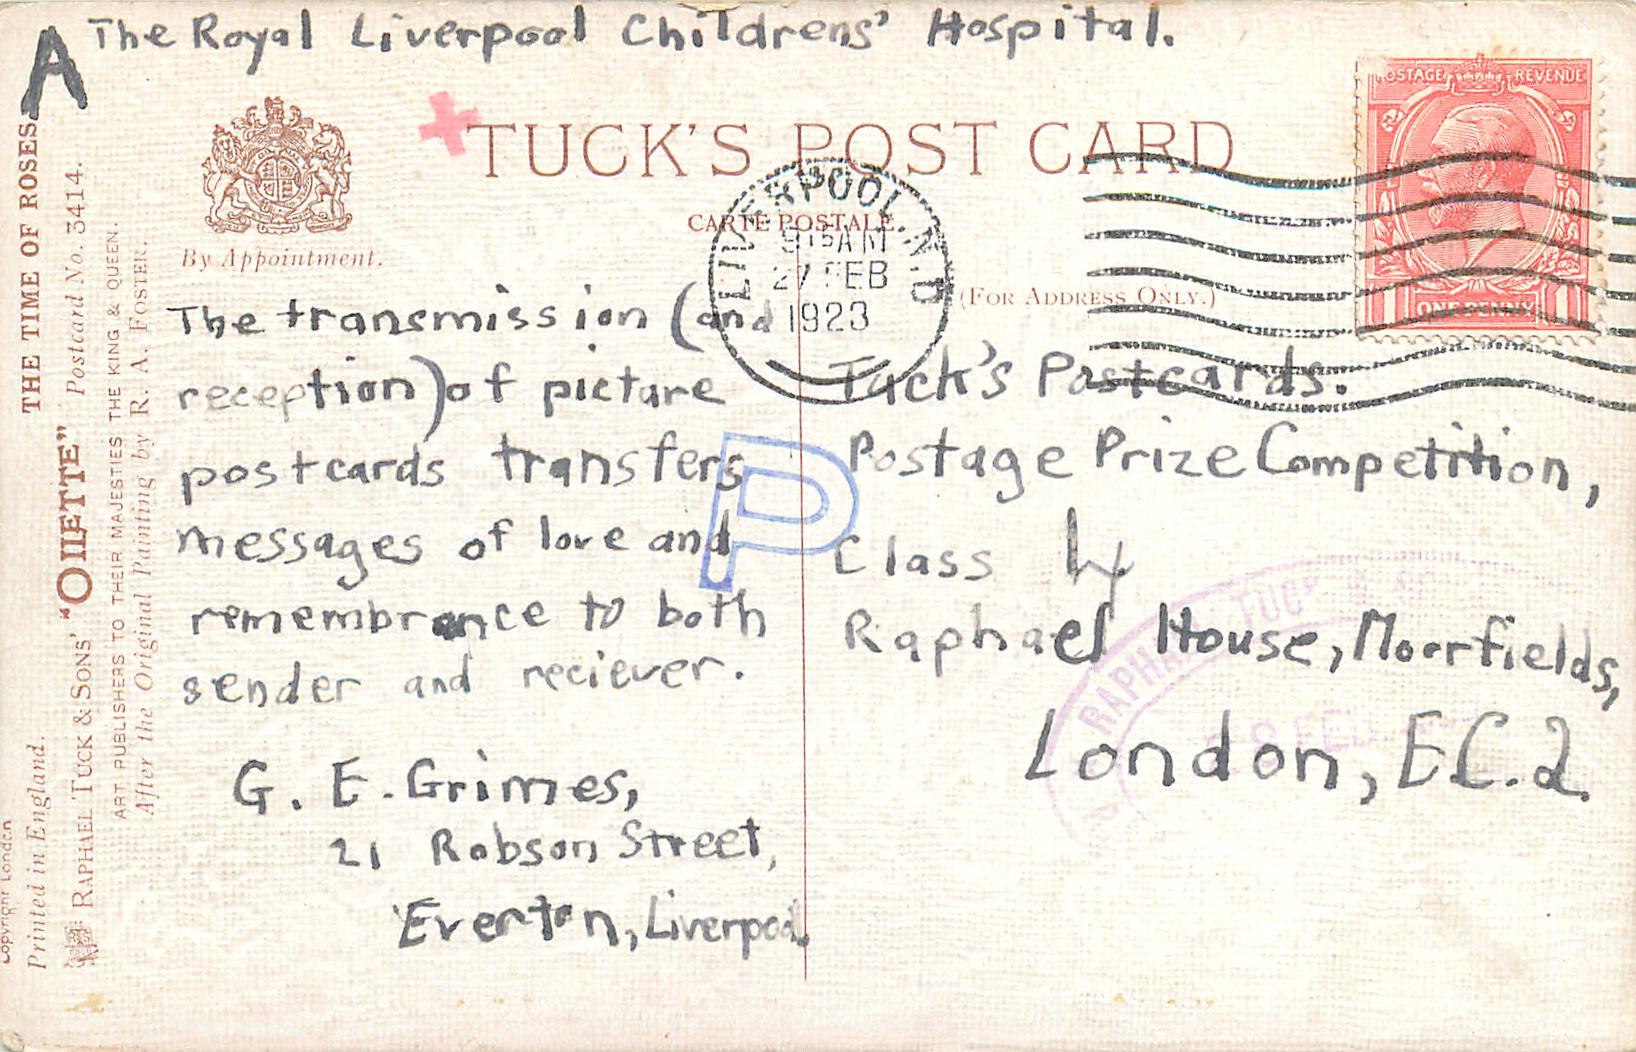 A The Royal Liverpool Childrens' Hospital.
POSTAGE REVENUE
ONE PENNY
TUCK'S POST CARD
CARTE POSTALE.
(FOR ADDRESS ONLY.)
By Appointment.
LIVERPOOL. N.D
AM
27 FEB
1923
The transmission (and
reception) of picture
postcards transfers
messages of love and
remembrance to both
sender and reciever.
G. E. Grimes,
21 Robson Street,
Everton, Liverpool.
P
Tuck's Postcards.
Postage Prize Competition,
Class 4
Raphael House, Moorfields,
London, E.C.2.
RAPHAEL TUCK &
28 FEB
THE TIME OF ROSES
RAPHAEL TUCK & SONS' "OILETTE" Postcard No. 3414.
ART PUBLISHERS TO THEIR MAJESTIES THE KING & QUEEN.
After the Original Painting by R. A. FOSTER.
Copyright London
Printed in England.